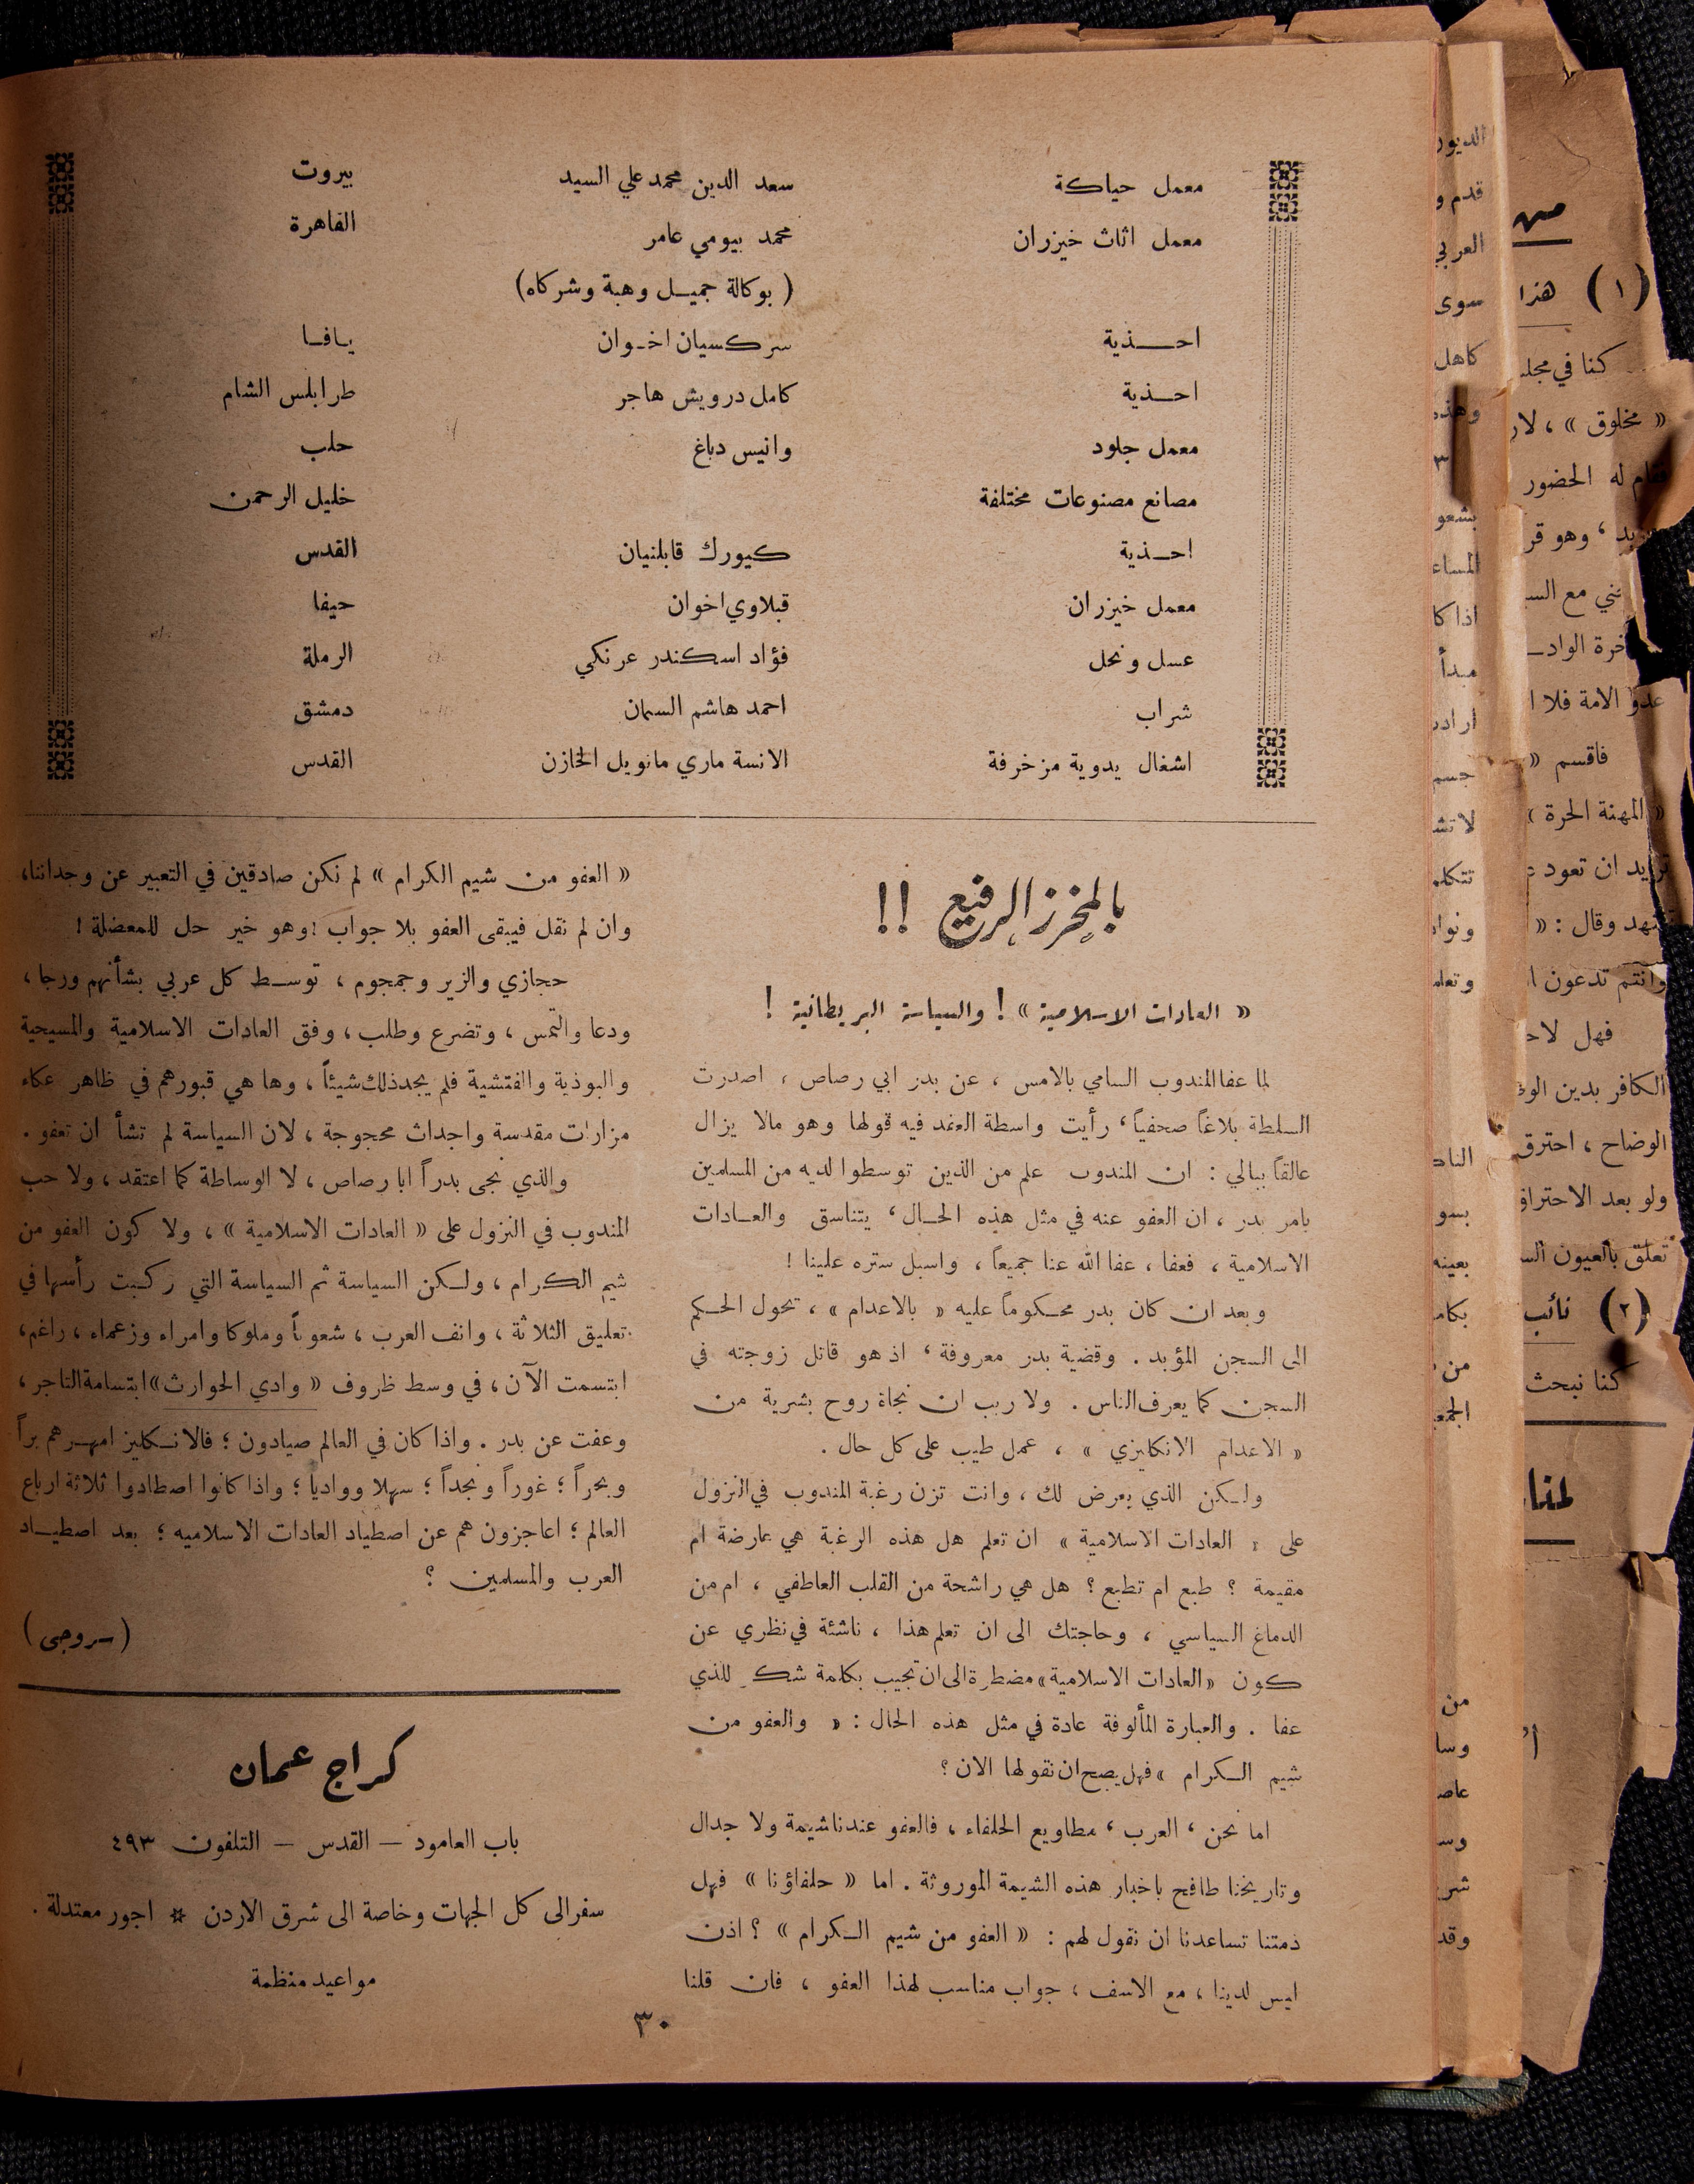 معمل حياكة سعد الدين محمد علي السيد بيروت
معمل اثاث خيزران محمد بيومي عامر القاهرة
( بوكالة جميل وهبة وشركاه)
احذية سركسيان اخوان يافا
احذية كامل درويش هاجر طرابلس الشام
معمل جلود وانيس دباغ حلب
مصانع مصنوعات مختلفة خليل الرحمن
احذية كيورك قابلنيان القدس
معمل خيزران قبلاوي اخوان حيفا
عسل ونحل فؤاد اسكندر عرنكي الرملة
شراب احمد هاشم السمان دمشق
اشغال يدوية مزخرفة الانسة ماري مانويل الخازن القدس
بالمخرز الرفيع !!
« العادات الاسلامية » ! والسياسة البريطانية !
لما عفا المندوب السامي بالامس ، عن بدر ابي رصاص ، اصدرت
السلطة بلاغاً صحفياً، رأيت واسطة العقد فيه قولها وهو مالا يزال
عالقاً ببالي : ان المندوب علم من الذين توسطوا لديه من المسلمين
بامر بدر ، ان العفو عنه في مثل هذه الحال، يتناسق والعادات
الاسلامية ، فعفا ، عفا الله عنا جميعاً ، واسبل ستره علينا !
وبعد ان كان بدر محكوماً عليه « بالاعدام » ، تحول الحكم
الى السجن المؤبد . وقضية بدر معروفة ، اذ هو قاتل زوجته في
السجن كما يعرف الناس . ولا ريب ان نجاة روح بشرية من
« الاعدام الانكليزي » ، عمل طيب على كل حال .
ولكن الذي يعرض لك ، وانت تزن رغبة المندوب في النزول
على « العادات الاسلامية » ان تعلم هل هذه الرغبة هي عارضة ام
مقيمة ؟ طبع ام تطبع ؟ هل هي راشحة من القلب العاطفي ، ام من
الدماغ السياسي ، وحاجتك الى ان تعلم هذا ، ناشئة في نظري عن
كون «العادات الاسلامية» مضطرة الى ان تجيب بكلمة شكر للذي
عفا . والعبارة المألوفة عادة في مثل هذه الحال : « والعفو من
شيم الكرام » فهل يصح ان نقولها الان ؟
اما نحن ، العرب ، مطاويع الحلفاء ، فالعفو عندنا شيمة ولا جدال
وتاريخنا طافح باخبار هذه الشيمة الموروثة . اما « حلفاؤنا » فهل
ذمتنا تساعدنا ان نقول لهم : « العفو من شيم الكرام » ؟ اذن
ليس لدينا ، مع الاسف ، جواب مناسب لهذا العفو ، فان قلنا
« العفو من شيم الكرام » لم نكن صادقين في التعبير عن وجداننا،
وان لم نقل فيبقى العفو بلا جواب ! وهو خير حل للمعضلة !
حجازي والزير وجمجوم ، توسط كل عربي بشأنهم ورجا ،
ودعا والتمس ، وتضرع وطلب ، وفق العادات الاسلامية والمسيحية
والبوذية والفتشية فلم يجد ذلك شيئاً ، وها هي قبورهم في ظاهر عكاء
مزارات مقدسة واجداث محجوجة ، لان السياسة لم تشأ ان تعفو .
والذي نجى بدراً ابا رصاص ، لا الوساطة كما اعتقد ، ولا حب
المندوب في النزول على « العادات الاسلامية » ، ولا كون العفو من
شيم الكرام ، ولكن السياسة ثم السياسة التي ركبت رأسها في
تعليق الثلاثة ، وانف العرب ، شعوباً وملوكا وامراء وزعماء ، راغم،
ابتسمت الآن ، في وسط ظروف « وادي الحوارث » ابتسامة التاجر ،
وعفت عن بدر . واذا كان في العالم صيادون ؛ فالانكليز امهرهم براً
وبحراً ؛ غوراً ونجداً ؛ سهلا وواديا ؛ واذا كانوا اصطادوا ثلاثة ارباع
العالم ؛ اعاجزون هم عن اصطياد العادات الاسلاميه ؛ بعد اصطياد
العرب والمسلمين ؟
( سروجي )
كراج عمان
باب العامود — القدس — التلفون ٤٩٣
سفر الى كل الجهات وخاصة الى شرق الاردن * اجور معتدلة .
مواعيد منظمة
٣٠
الديور
قدم و
العربي
سوى
كاهل
وهذه
٣
بشعو
المساع
اذا كا
مبدأ
اراد
جسم
لا تش
تتكلم
ونوا
وتعلم
الناد
بسو
بعينه
بكام
من
الجمع
من
وسا
عاص
وس
شر
وقد
من
(١) هذا
كنا في مجل
« مخلوق » ، لار
له الحضور
، وهو قر
ني مع الس
خرة الواد
عدو الامة فلا ا
فاقسم «
« المهنة الحرة »
تريد ان تعود
وقال : «
وانتم تدعون ا
فهل لاح
الكافر بدين الو
الوضاح ، احترق
ولو بعد الاحترا
تعلق بالعيون الس
(٢) نائب
كنا نبحث
لمنا